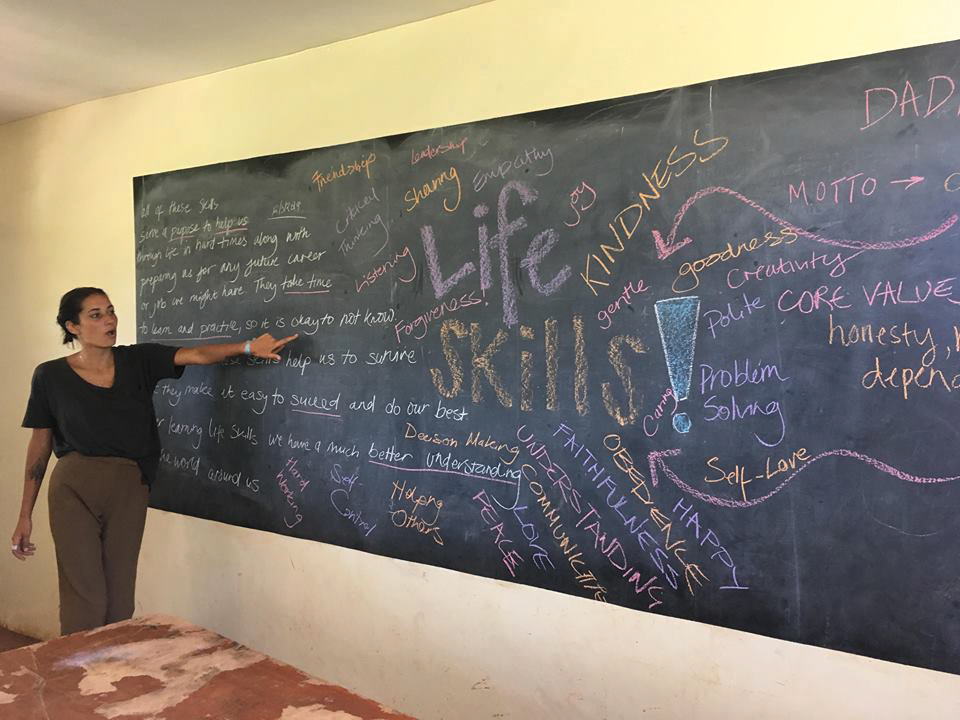 all of these skills
serve a pupose to help us
through life in hard times along with
preparing us for any future career
or job we might have. They take time
to learn and practice, so it is okay to not know.
skills help us to survive
they make it easy to succed and do our best
learning life skills we have a much better understanding
the world around us
Friendship
Leadership
Sharing
Empathy
Critical
Thinking
Listening
Forgiveness!
Life
Skills!
joy
KINDNESS
gentle
goodness
Creativity
Polite
Problem
Solving
Caring
Self-Love
Decision Making
Hard
Working
Self
Control
Helping
Others
PEACE
LOVE
COMMUNICATE
UNDERSTANDING
FAITHFULNESS
OBEDIENCE
HAPPY
DAD
MOTTO →
CORE VALUE
honesty,
depen